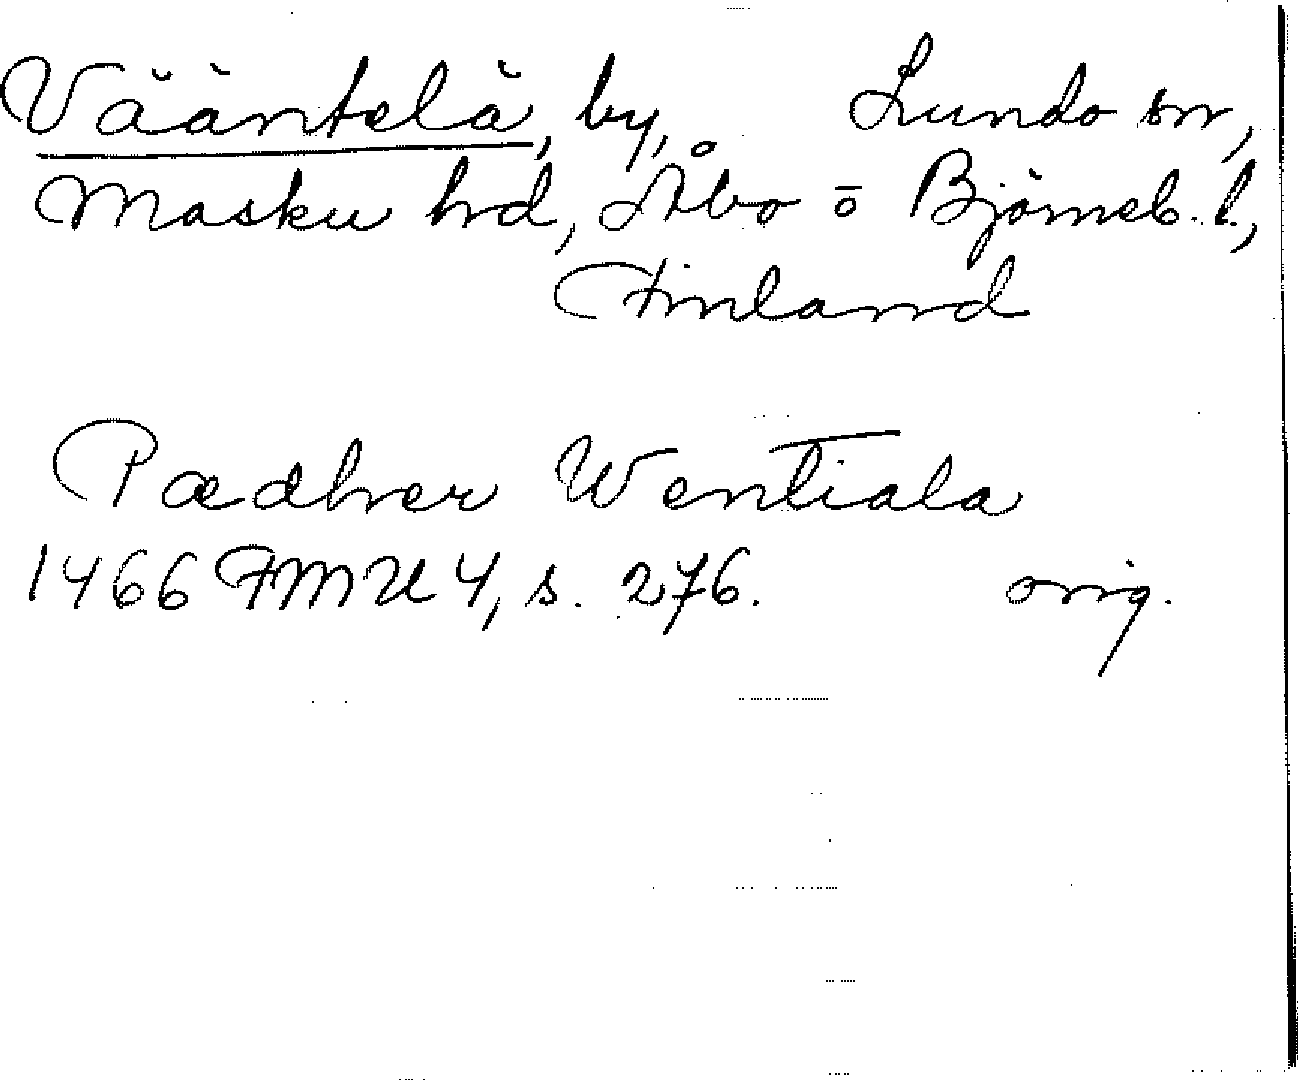 Vääntelä, by, Lundo sn,
Masku hd, Åbo ō Björneb. l.,
Finland
Pædher Wentiala
1466 FMU 4, s. 276. orig.